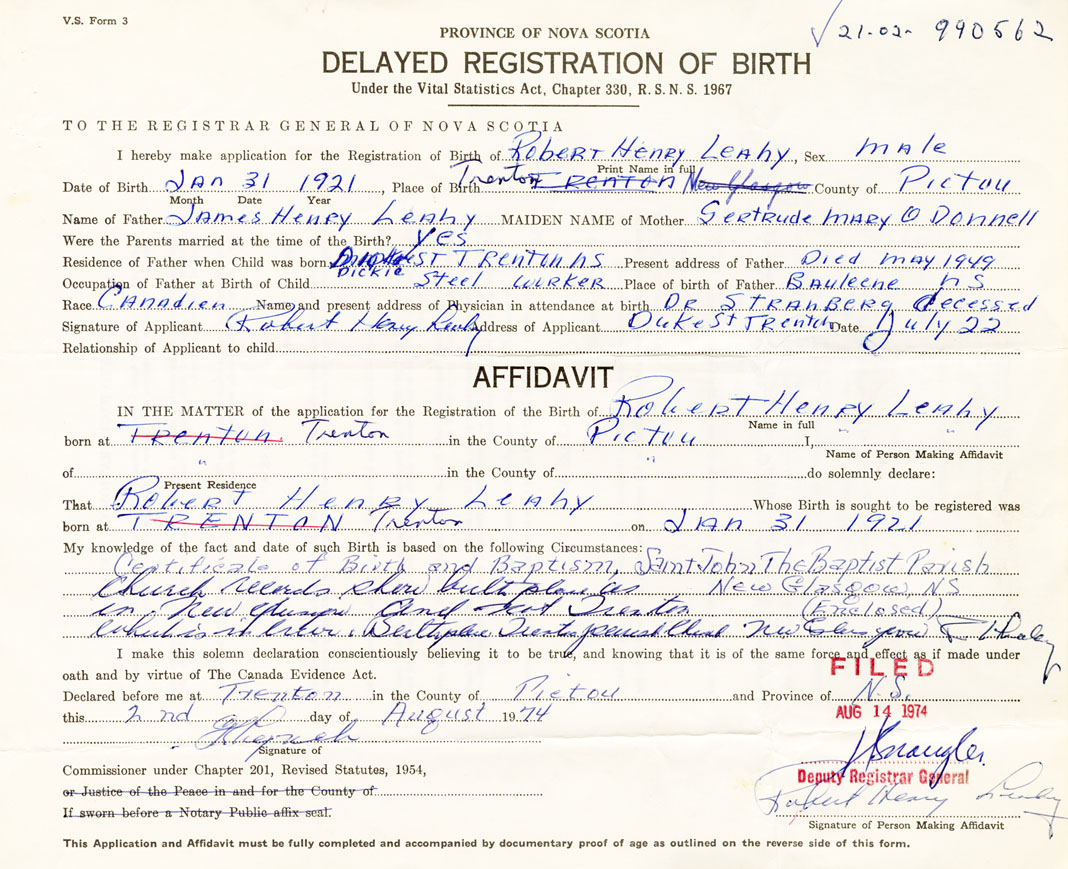 V.S. Form 3
21-02- 990562
PROVINCE OF NOVA SCOTIA
DELAYED REGISTRATION OF BIRTH
Under the Vital Statistics Act, Chapter 330, R.S.N.S. 1967
TO THE REGISTRAR GENERAL OF NOVA SCOTIA
I hereby make application for the Registration of Birth of Robert Henry Leahy, Sex male
Print Name in full
Date of Birth Jan 31 1921, Place of Birth Trenton Trenton New Glasgow County of Pictou
Month Date Year
Name of Father James Henry Leahy MAIDEN NAME of Mother Gertrude Mary O Donnell
Were the Parents married at the time of the Birth? yes
Residence of Father when Child was born St Trenton NS Present address of Father Died may 1949
Dickie
Occupation of Father at Birth of Child Steel Wurker Place of birth of Father Bauleene NS
Race Canadien Name and present address of Physician in attendance at birth DR Stranberg decessed
Signature of Applicant Robert Henry Leahy Address of Applicant Duke St Trenton Date July 22
Relationship of Applicant to child
AFFIDAVIT
IN THE MATTER of the application for the Registration of the Birth of Robert Henry Leahy
Name in full
born at Trenton Trenton in the County of Pictou I, " "
Name of Person Making Affidavit
of " in the County of " do solemnly declare:
Present Residence
That Robert Henry Leahy Whose Birth is sought to be registered was
born at Trenton Trenton on Jan 31 1921
My knowledge of the fact and date of such Birth is based on the following Circumstances:
Certificate of Birth and Baptism, Saint John The Baptist Parish
Church records show birth place as New Glasgow, NS
in New Glasgow and not Trenton (Enclosed)
Birthplace Trenton New Glasgow
I make this solemn declaration conscientiously believing it to be true, and knowing that it is of the same force and effect as if made under
oath and by virtue of The Canada Evidence Act.
FILED
Declared before me at Trenton in the County of Pictou and Province of N.S.
this 2nd day of August 1974
AUG 14 1974
Signature of
Commissioner under Chapter 201, Revised Statutes, 1954,
Deputy Registrar General
or Justice of the Peace in and for the County of
Robert Henry Leahy
If sworn before a Notary Public affix seal.
Signature of Person Making Affidavit
This Application and Affidavit must be fully completed and accompanied by documentary proof of age as outlined on the reverse side of this form.